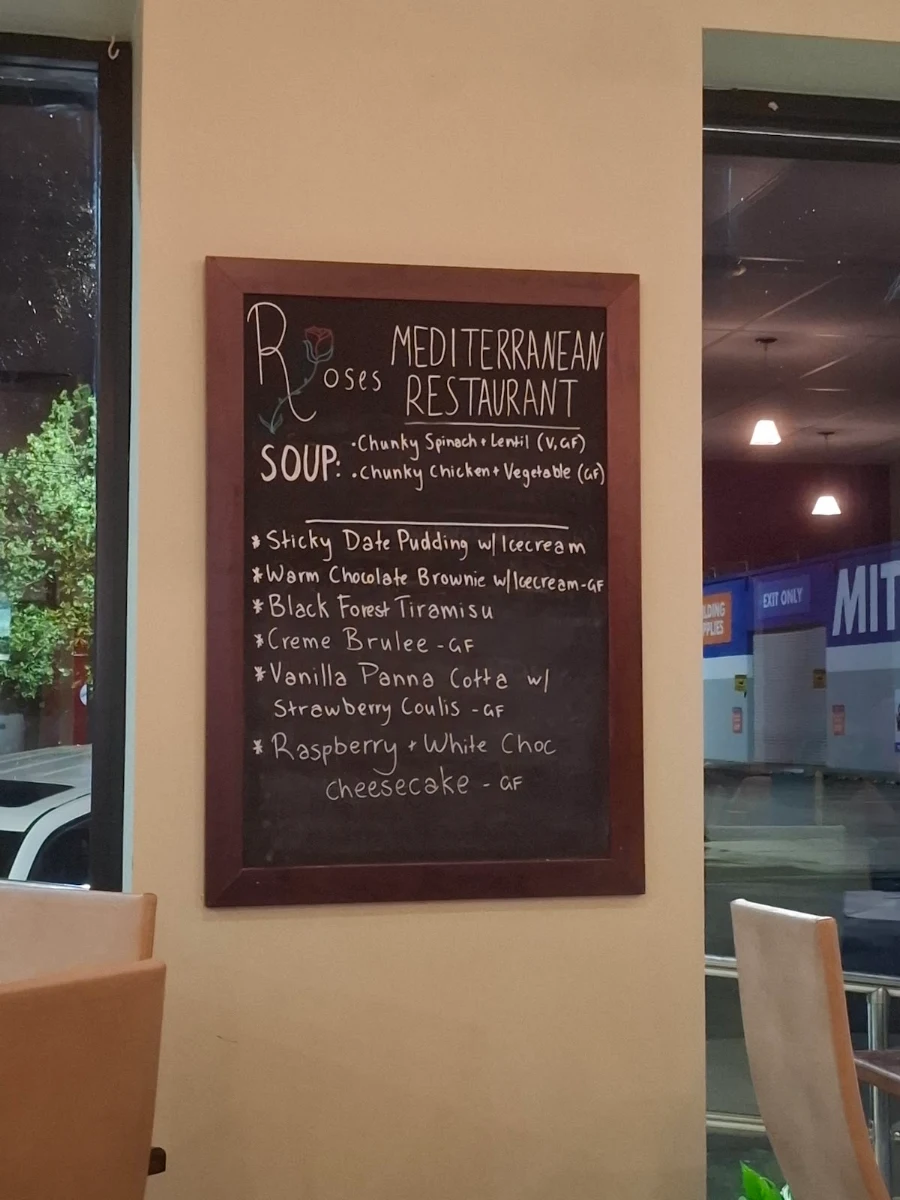 Roses MEDITERRANEAN
RESTAURANT
SOUP: •Chunky Spinach + Lentil (V, GF)
•Chunky Chicken + Vegetable (GF)
* Sticky Date Pudding w/ Icecream
* Warm Chocolate Brownie w/ Icecream - GF
* Black Forest Tiramisu
* Creme Brulee - GF
* Vanilla Panna Cotta w/
Strawberry Coulis - GF
* Raspberry + White Choc
cheesecake - GF
EXIT ONLY
MIT